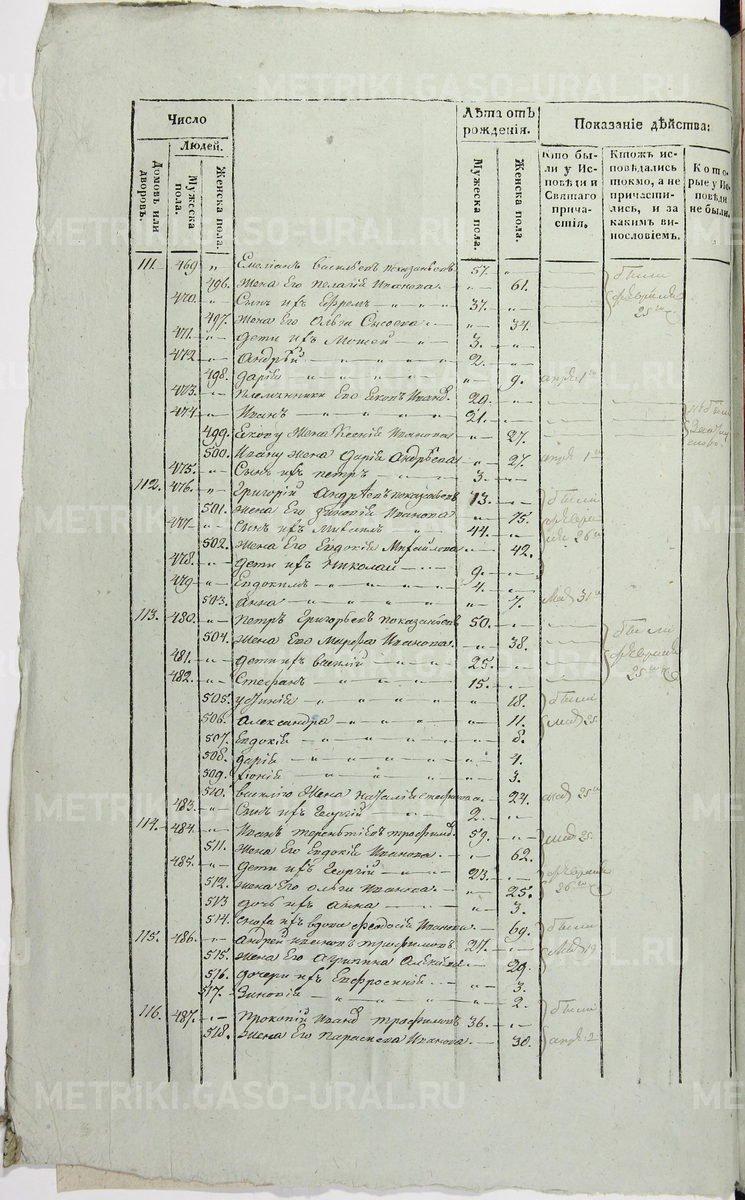 METRIKI.GASO-URAL.RU
Число
Лѣта отъ рожденія.
Показаніе дѣйства:
Людей.
Домовъ или дворовъ.
Мужеска пола.
Женска пола.
Мужеска пола.
Женска пола.
Кто были у Исповѣди и Святаго причастія.
Ктожъ исповѣдались токмо, а не причастились, и за какимъ винословіемъ.
Которые у Исповѣди не были.
111. 469 " Емеліанъ Васильевъ 57. "
496. Жена Его Пелагія Иванова " 61. были
470. " Сынъ ихъ Ефремъ " " " 37. " февраля
497. Жена Его Ольга Сысоева " " 34. 25
471. " Дети ихъ Моисей " " 3. "
472 " Андрѣй " " " 2. "
498. Дарія " " " " 9.
473. " Племянники Его 20. "
474. " Иванъ " " " " 21. "
499. Жена Ксенія Иванова " 27.
500. Ивану Жена Дарія Андрѣева " 27.
475. " Сынъ ихъ Петръ " " 3. "
112. 476. " Григорій Андрѣевъ 73. " были
501. Жена Его Зиновія Иванова " 75.
477 " Сынъ ихъ 44. " 26
502. Жена Его Евдокія Михайлова " 42.
478. " Дети ихъ Николай " 9. "
479 " Евдокимъ " " " 4. "
503. Анна " " " " 7. Маія 31
113. 480. " Петръ Григорьевъ 50. "
504. Жена Его Марфа Иванова " 38. были
481. " Дети ихъ Василій " " 25. " февраля
482. " Стефанъ " " " 15. " 25
505. Устинія " " " " 18. были
506. Александра " " " " 11. маія 25
507. Евдокія " " " " 8.
508. Дарія " " " " 4.
509. " " " 3.
510. Василію Жена Наталія " 24. маія 25
483. " Сынъ ихъ Георгій " " 2. "
114. 484. " Иванъ Терентіевъ 59. " маія 25.
511. Жена Его Евдокія Иванова " " 62.
485. " Дети ихъ Георгій " " 23. " февраля
512. Жена Его Ольга Иванова " " 25. 26
513 дочь ихъ Анна " " " 3.
514. Сноха ихъ вдова Феодосія Иванова " 69. были
115. 486. " Андрей Ивановъ Трофимовъ 27. "
515. Жена Его Агрипина " 29.
516. дочери ихъ Евфросинія " " 3.
517. Зиновія " " " " 2.
116. 487. " Прокопій Иванов Трофимовъ 36. " были
518. Жена Его Параскева Иванова " 38.